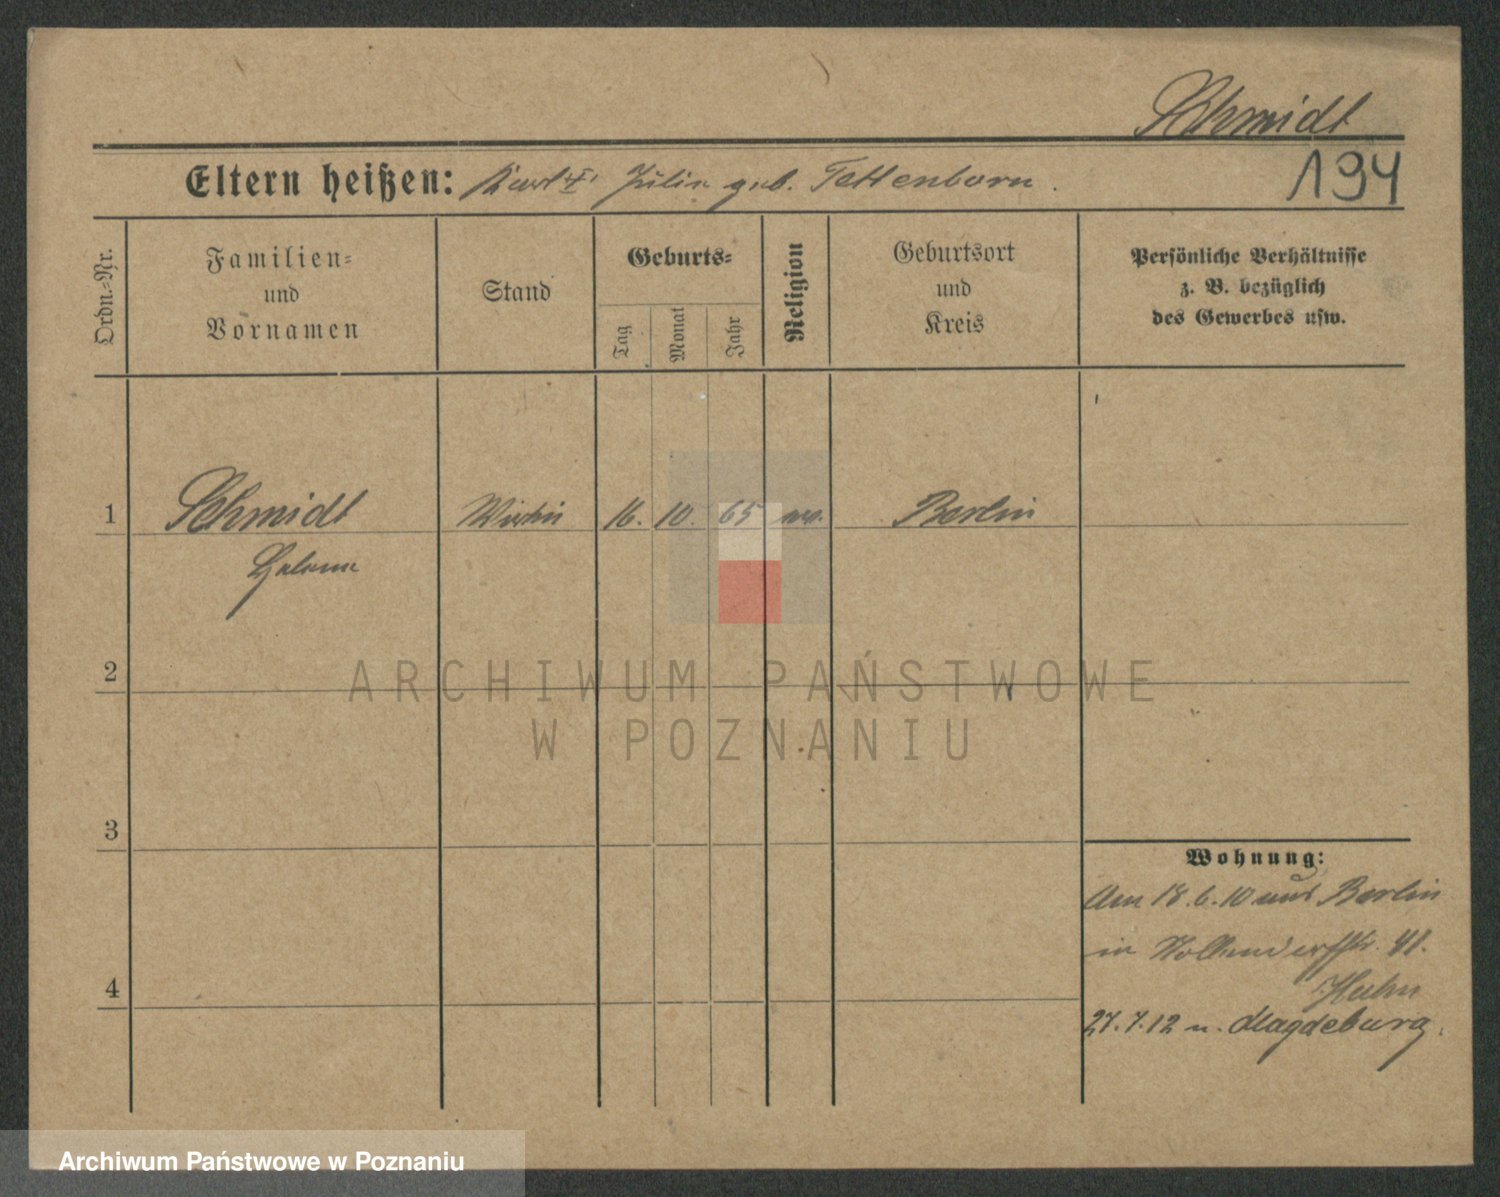 Schmidt
194
Eltern heißen: Karl u. Julie geb. Tettenborn.
Ordn.=Nr.
Familien=
und
Vornamen
Stand
Geburts=
Tag
Monat
Jahr
Religion
Geburtsort
und
Kreis
Persönliche Verhältnisse
z. B. bezüglich
des Gewerbes usw.
1
Schmidt
Wirtin
16.
10.
65
ev.
Berlin
Helene
2
3
4
Wohnung:
Am 18.6.10 aus Berlin
in 41.
Hahn
27.7.12 n. Magdeburg.
ARCHIWUM PAŃSTWOWE
W POZNANIU
Archiwum Państwowe w Poznaniu